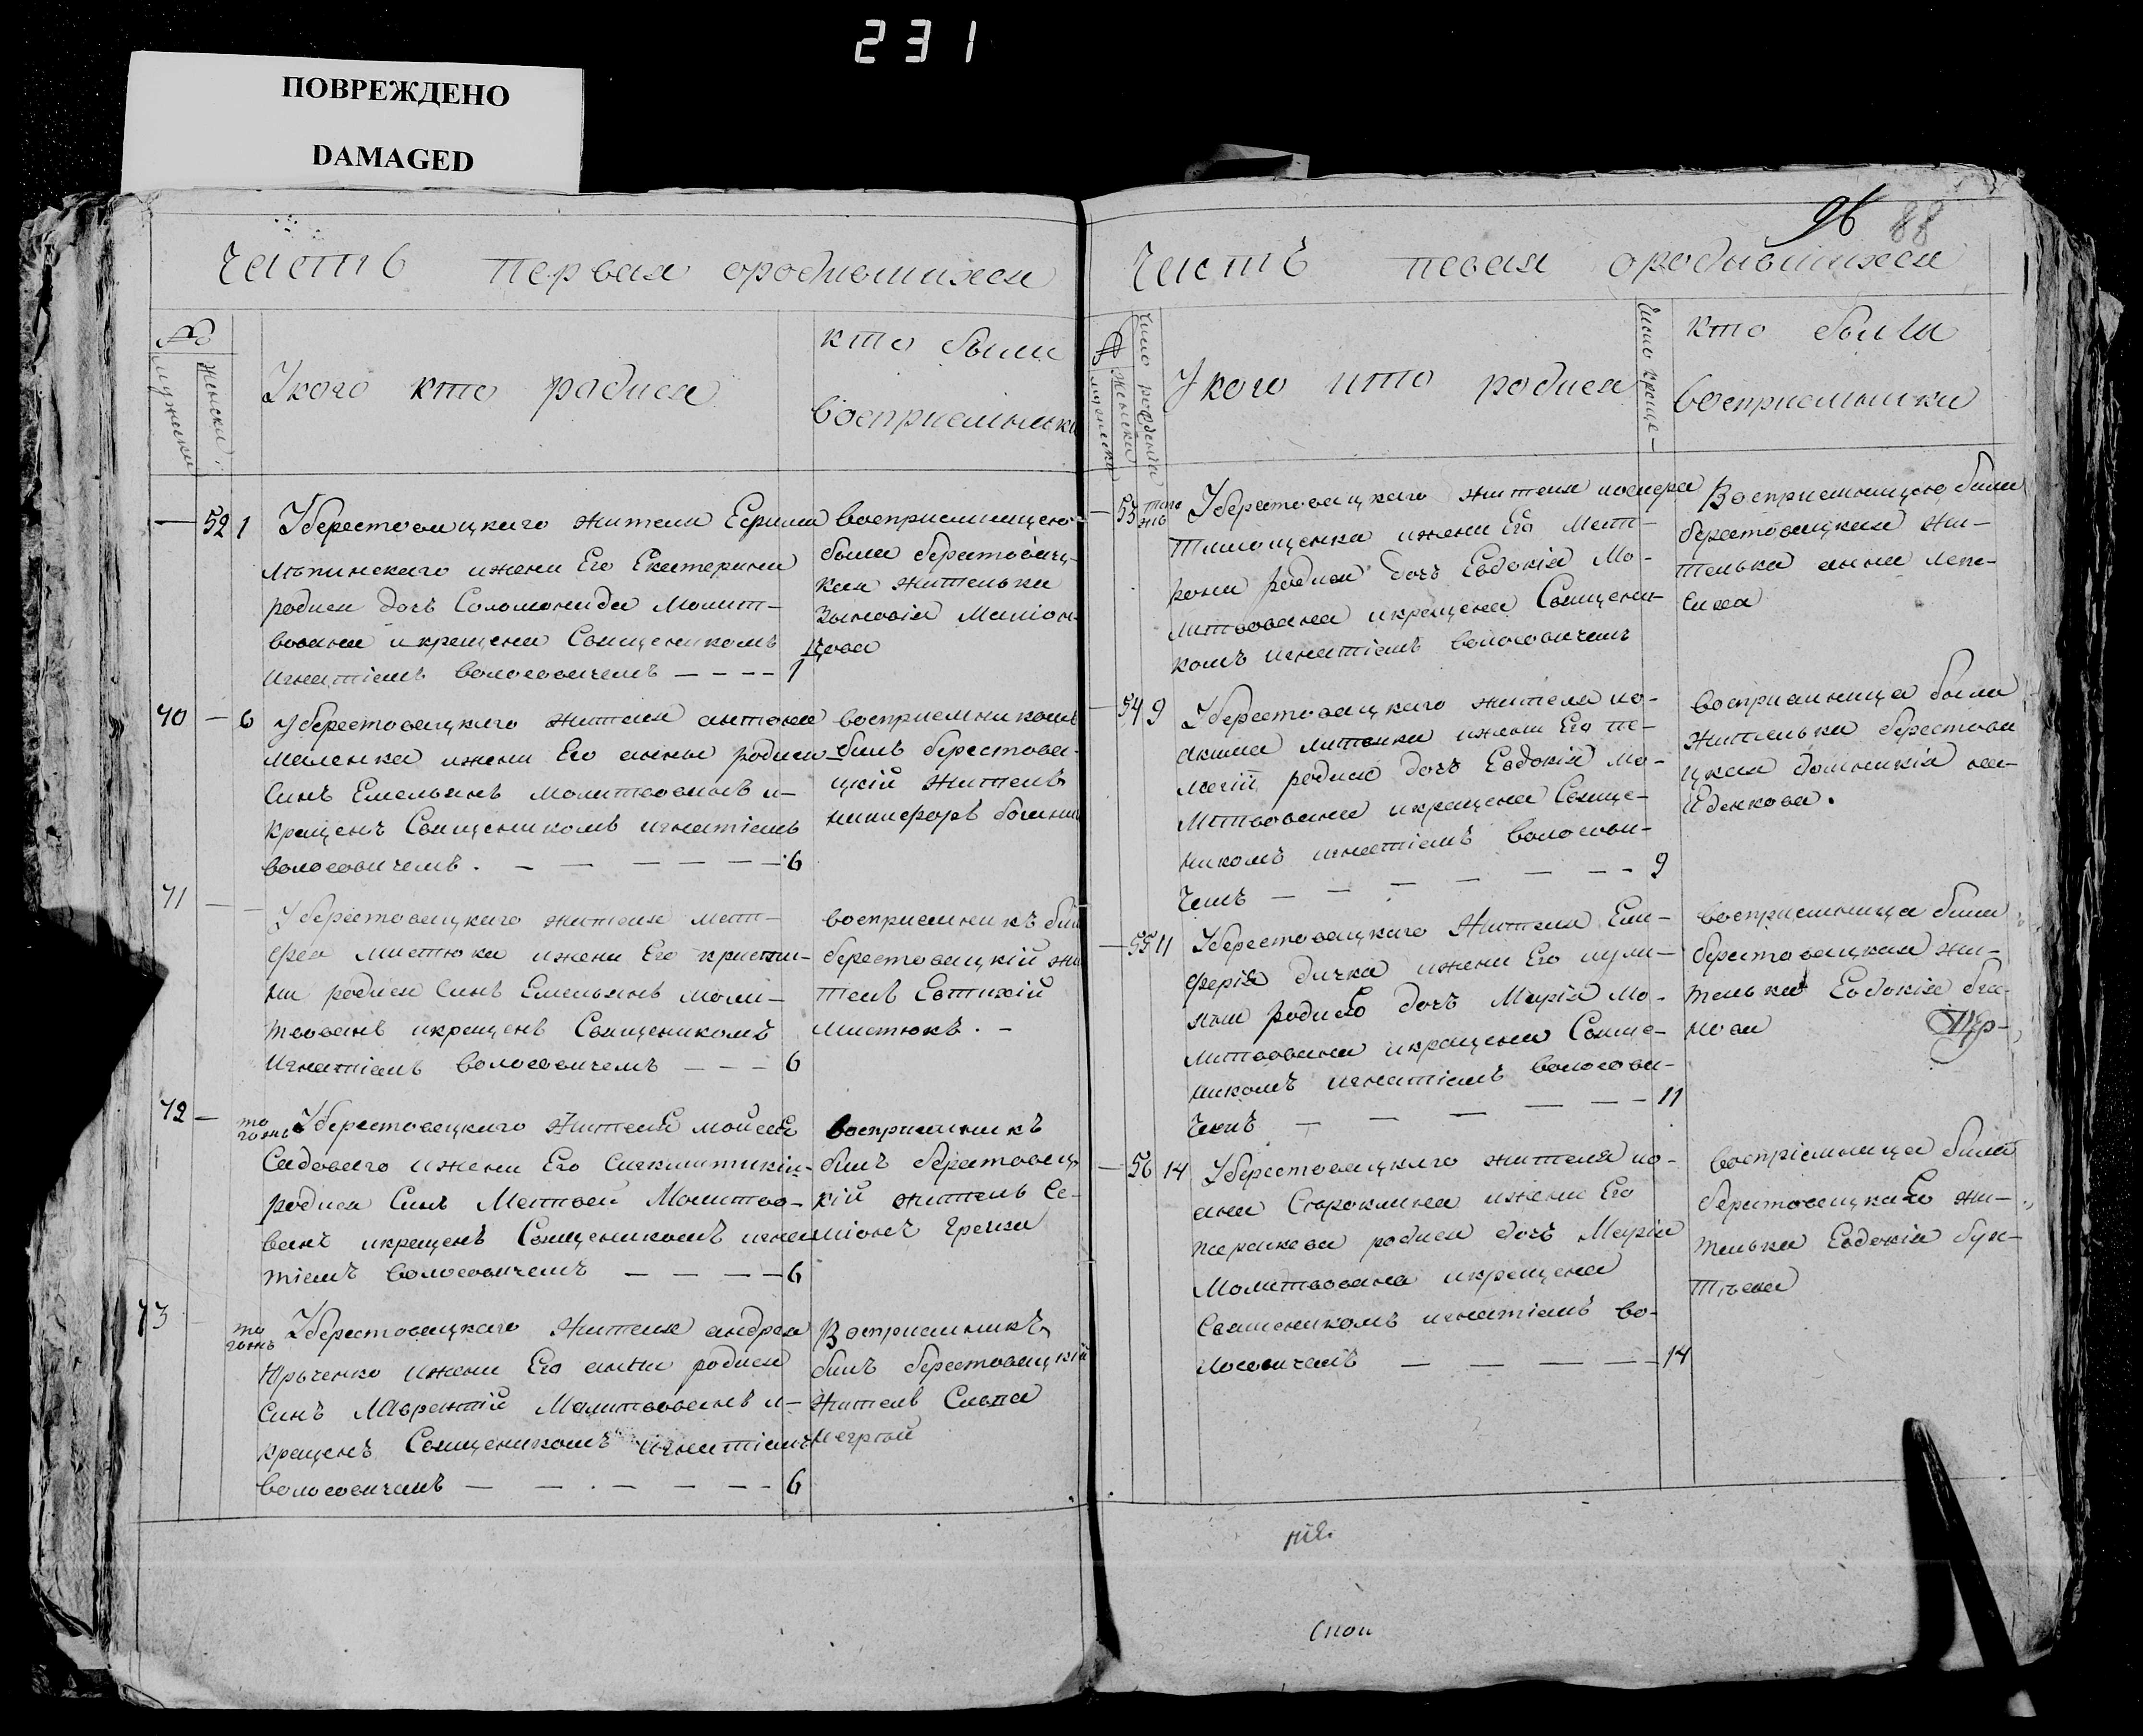 231
ПОВРЕЖДЕНО
DAMAGED
96 88
Часть первая ородившихся
№
мужески
женски
Укого кто родися
кто были
восприемники
52 1 Уберестовецкаго жителя Ефима
ижени Его Екатерини
родися дочь Соломонида Молит-
вована икрещена Священикомъ
игнатіемъ волосовичемъ - - - - 1
восприемницею
была берестовец-
кая жителька
70 - 6 Уберестовецкаго жителя антона
маленка ижени Его анны родися
Синъ Емельянъ молитвованъ и-
крещенъ Священикомъ игнатіемъ
волосовичемъ. - - - - - - 6
восприемникомъ
билъ берестове-
цкій житель
никифоръ
71 - - Уберестовецкаго жителя мат-
фея мистюка ижени Его христи-
ни родися Синъ Емельянъ моли-
твованъ икрещенъ Священикомъ
Игнатіемъ волосовичемъ - - - 6
восприемникъ бил
берестовецкій жи
тель Евтихій
мистюкъ. -
72 - того жъ Уберестовецкаго жителя мойсея
Садоваго ижени Его
родися Синъ Матвей Молитво-
ванъ икрещенъ Священикомъ игна
тіемъ волосовичемъ - - - - 6
восприемникъ
билъ берестовец
кій житель Се-
міонъ Гречка
73 того жъ Уберестовецкаго жителя андрея
Юрченко ижени Его анни родися
Синъ Лаврентій Молитвованъ и-
крещенъ Священикомъ игнатіемъ
волосовичемъ - - - - - - 6
Восприемникъ
билъ берестовецкій
житель
Часть певая ородившихся
№
мужески
женски
число рождения
Укого кто родися
Число креще-
кто были
восприемники
- 53 того жъ Уберестовецкаго жителя
Тимощенка ижени Его Мат-
рони родися дочъ Евдокія Мо-
литвована икрещена Священи-
комъ игнатіемъ волосовичемъ
Восприемницею была
берестовецкая жи-
телька анна
- 54 9 Уберестовецкаго жителя ио-
акима литвика ижены Его пе-
лагіи родися дочъ Евдокія мо-
литвована икрещена Свяще-
никомъ игнатіемъ волосови-
чемъ - - - - - - - 9
восприемница была
жителька берестове
цкая домникія
- 55 11 Уберестовецкаго жителя Ели-
ферія дичка ижени Его
родися дочъ Марія Мо-
литвована икрещена Свяще-
никомъ игнатіемъ волосови-
чемъ - - - - - - 11
восприемница была
берестовецкая жи-
телька Евдокія
- 56 14 Уберестовецкаго жителя ио-
ана Староклина ижени Его
параскеви родися дочъ Марія
Молитвована икрещена
Священикомъ игнатіемъ во-
лосовичемъ - - - - - 14
воспріемница била
берестовецкая жи-
телька Евдокія